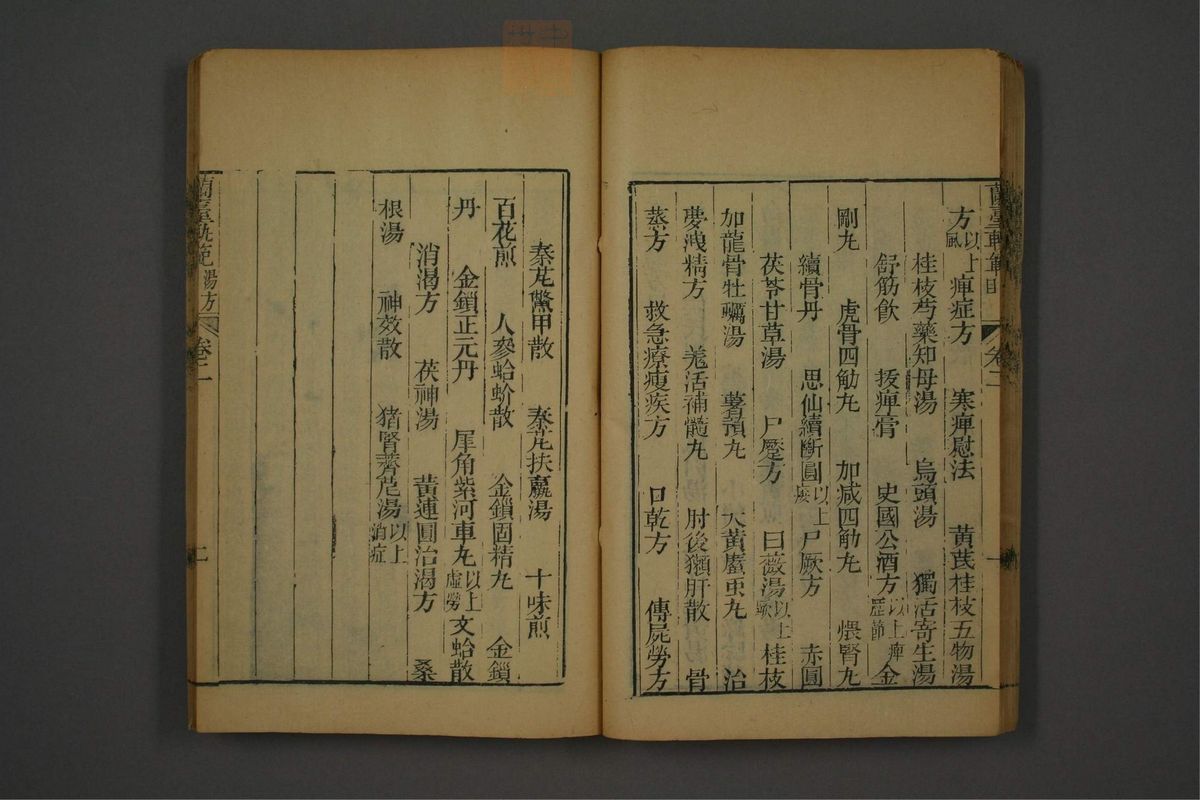 蘭臺軌範 目 卷二 一
方以上風 痺症方 寒痺慰法 黃芪桂枝五物湯
桂枝芍藥知母湯 烏頭湯 獨活寄生湯
舒筋飲 援痺膏 史國公酒方以上痺歷節 金
剛丸 虎骨四觔丸 加減四觔丸 煨腎丸
續骨丹 思仙續斷圓以上痿 尸厥方 赤圓
茯苓甘草湯 尸蹷方 白薇湯以上厥 桂枝
加龍骨牡蠣湯 薯蕷丸 大黃䗪虫丸 治
夢洩精方 羗活補髓丸 肘後獺肝散 骨
蒸方 救急療瘦疾方 口乾方 傳屍勞方
秦芃鱉甲散 秦芃扶羸湯 十味煎
百花煎 人參蛤蚧散 金鎖固精丸 金鎖
丹 金鎖正元丹 犀角紫河車丸以上虛勞 文蛤散
消渴方 茯神湯 黃連圓治渴方 桑
根湯 神效散 猪腎薺苨湯以上消症
蘭臺軌範 湯方 卷二 二